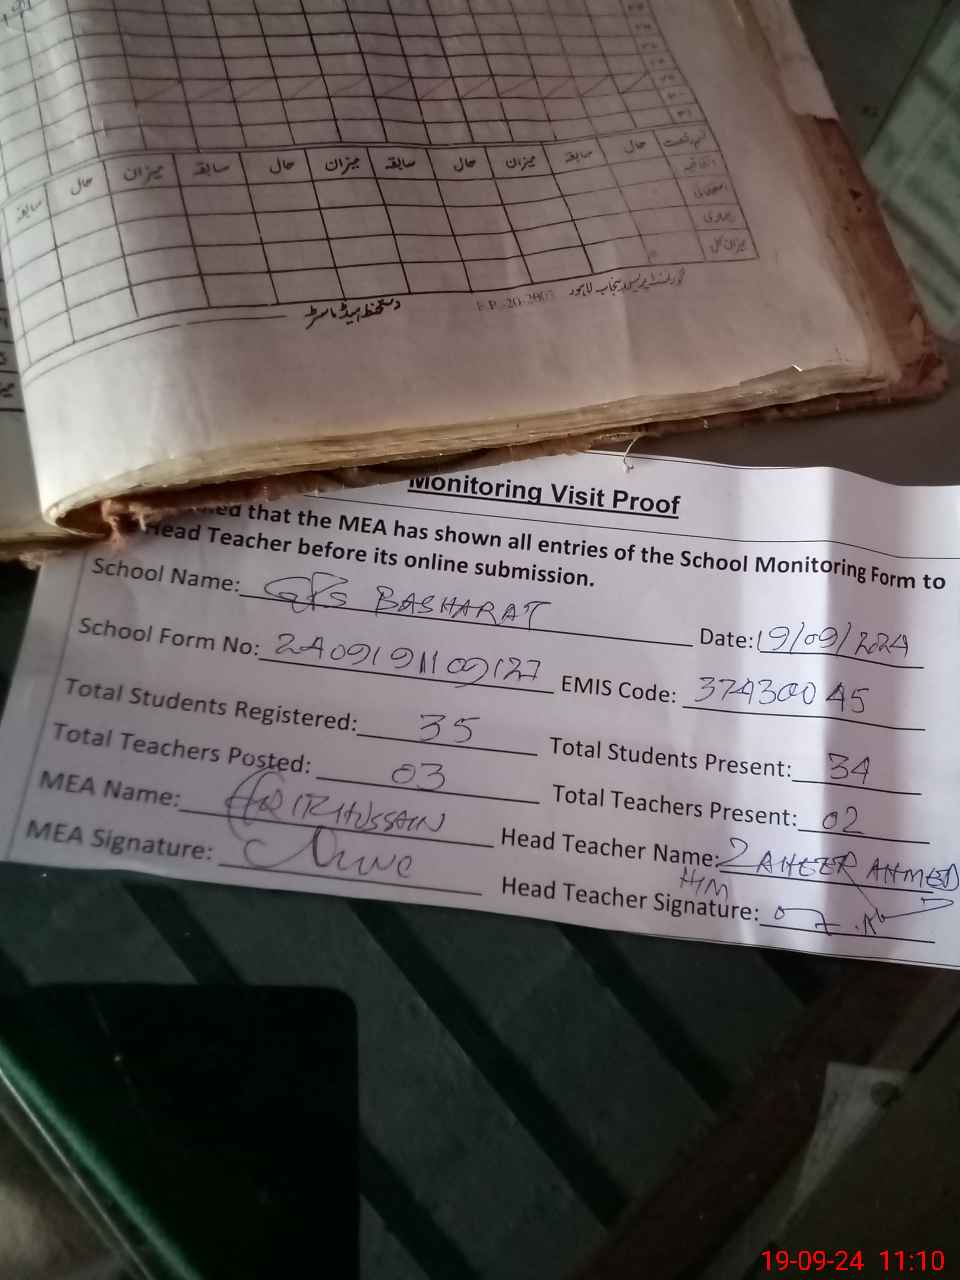 سابقہ حال میزان سابقہ حال میزان سابقہ حال میزان سابقہ حال
میزان کل
دستخط ہیڈ ماسٹر
گورنمنٹ پریس پنجاب لاہور
Monitoring Visit Proof
that the MEA has shown all entries of the School Monitoring Form to
Head Teacher before its online submission.
School Name: GPS BASHARAT Date: 19/09/2024
School Form No: 2409191109127 EMIS Code: 37430045
Total Students Registered: 35 Total Students Present: 34
Total Teachers Posted: 03 Total Teachers Present: 02
MEA Name: HUSSAIN Head Teacher Name: ZAHEER AHMED
HM
MEA Signature: Head Teacher Signature:
19-09-24 11:10